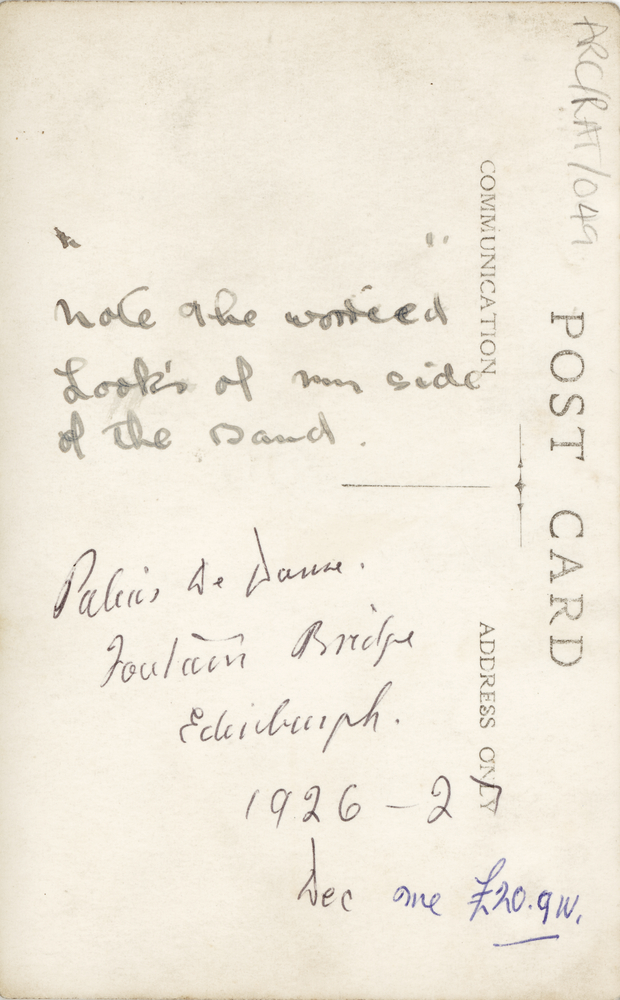 ARC/RAT/049
POST CARD
COMMUNICATION
ADDRESS ONLY
" "
Note the worried
Look's of my side
of the Band.
Palais De Danse.
Fountain Bridge
Edinburgh.
1926-27
Dec me £20.9W.